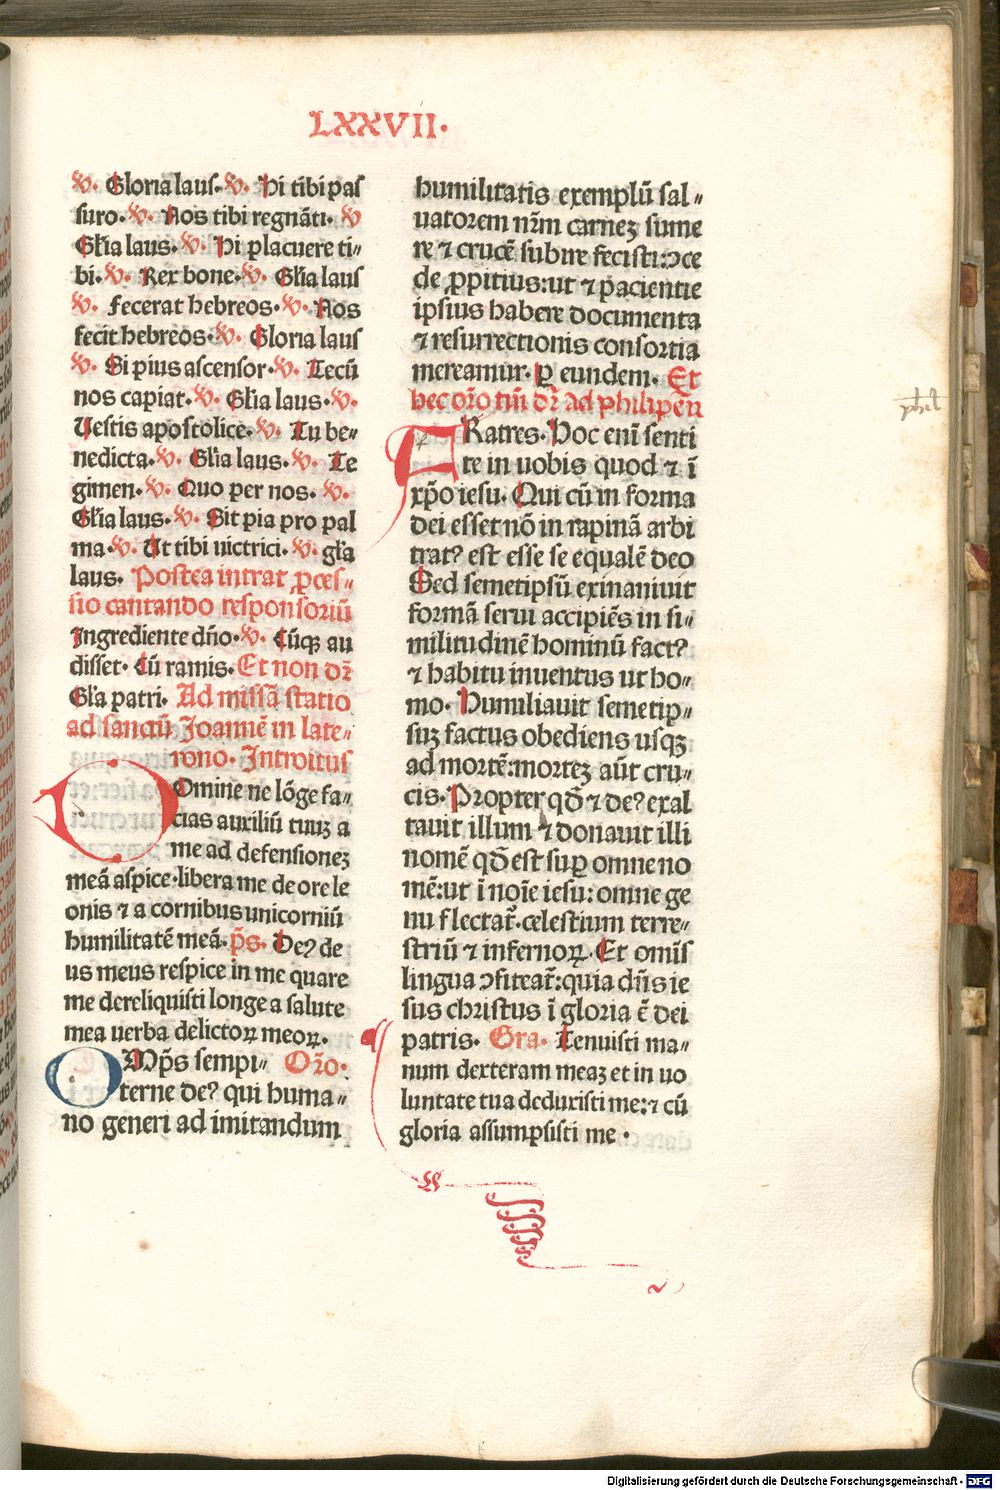 LXXVII·
℣. Gloria laus. ℣. Hi tibi pas
suro. ℣. Nos tibi regnāti. ℣
Gl'ia laus. ℣. Hi placuere ti⸗
bi. ℣. Rex bone. ℣. Gl'ia laus
℣. Fecerat hebreos. ℣. Nos
fecit hebreos. ℣. Gloria laus
℣. Si pius ascensor. ℣. Tecū
nos capiat. ℣. Gl'ia laus. ℣.
Uestis apostolice. ℣. Tu be⸗
nedicta. ℣. Gl'ia laus. ℣. Te
gimen. ℣. Quo per nos. ℣.
Gl'ia laus. ℣. Sit pia pro pal
ma. ℣. Ut tibi uictrici. ℣. gl'a
laus. Postea intrat ꝓces⸗
sio cantando responsoriū
Ingrediente dño. ℣. Cūqꝫ au
disset. Cū ramis. Et non dꝛ̄
Gl'a patri. Ad missā statio
ad sanctū Joannē in late⸗
rono. Introitus
DOmine ne lōge fa⸗
cias auxiliū tuuꝫ a
me ad defensioneꝫ
meā aspice·libera me de ore le
onis ⁊ a cornibus unicorniū
humilitatē meā. p̄s. Deꝰ de
us meus respice in me quare
me dereliquisti longe a salute
mea uerba delictoꝝ meoꝝ.
OMp̄s sempi⸗ Oꝛ̄o.
terne deꝰ qui huma⸗
no generi ad imitandum
humilitatis exemplū sal⸗
uatorem nr̄m carneꝫ sume
re ⁊ crucē subire fecisti:ꝯce
de ꝓpitius:ut ⁊ pacientie
ipsius habere documenta
⁊ resurrectionis consortia
mereamur. ꝑ eundem. Et
hec oꝛ̄o tm̄ dꝛ̄ Ad philipeñ
phil
FRatres. Hoc eni senti
te in uobis quod ⁊ ī
xp̄o iesu. Qui cū in forma
dei esset nō in rapinā arbi
tratꝰ est esse se equalē deo
Sed semetipsū exinaniuit
formā serui accipiēs in si⸗
militudinē hominū factꝰ
⁊ habitu inuentus ut ho⸗
mo. Humiliauit semetip⸗
suꝫ factus obediens usqꝫ
ad mortē:morteꝫ aūt cru⸗
cis. Propter qđ ⁊ deꝰ exal
tauit illum ⁊ donauit illi
nomē qđ est suꝑ omne no
mē:ut ī noīe iesu: omne ge
nu flectat̄. celestium terre⸗
striū ⁊ infernoꝝ. Et omīs
lingua ꝯfiteat̄:quia dñs ie
sus christus ī gloria ē dei
patris. Gra. Tenuisti ma⸗
num dexteram meaꝫ et in uo
luntate tua deduxisti me:⁊ cū
gloria assumpsisti me ·
Digitalisierung gefördert durch die Deutsche Forschungsgemeinschaft - DFG